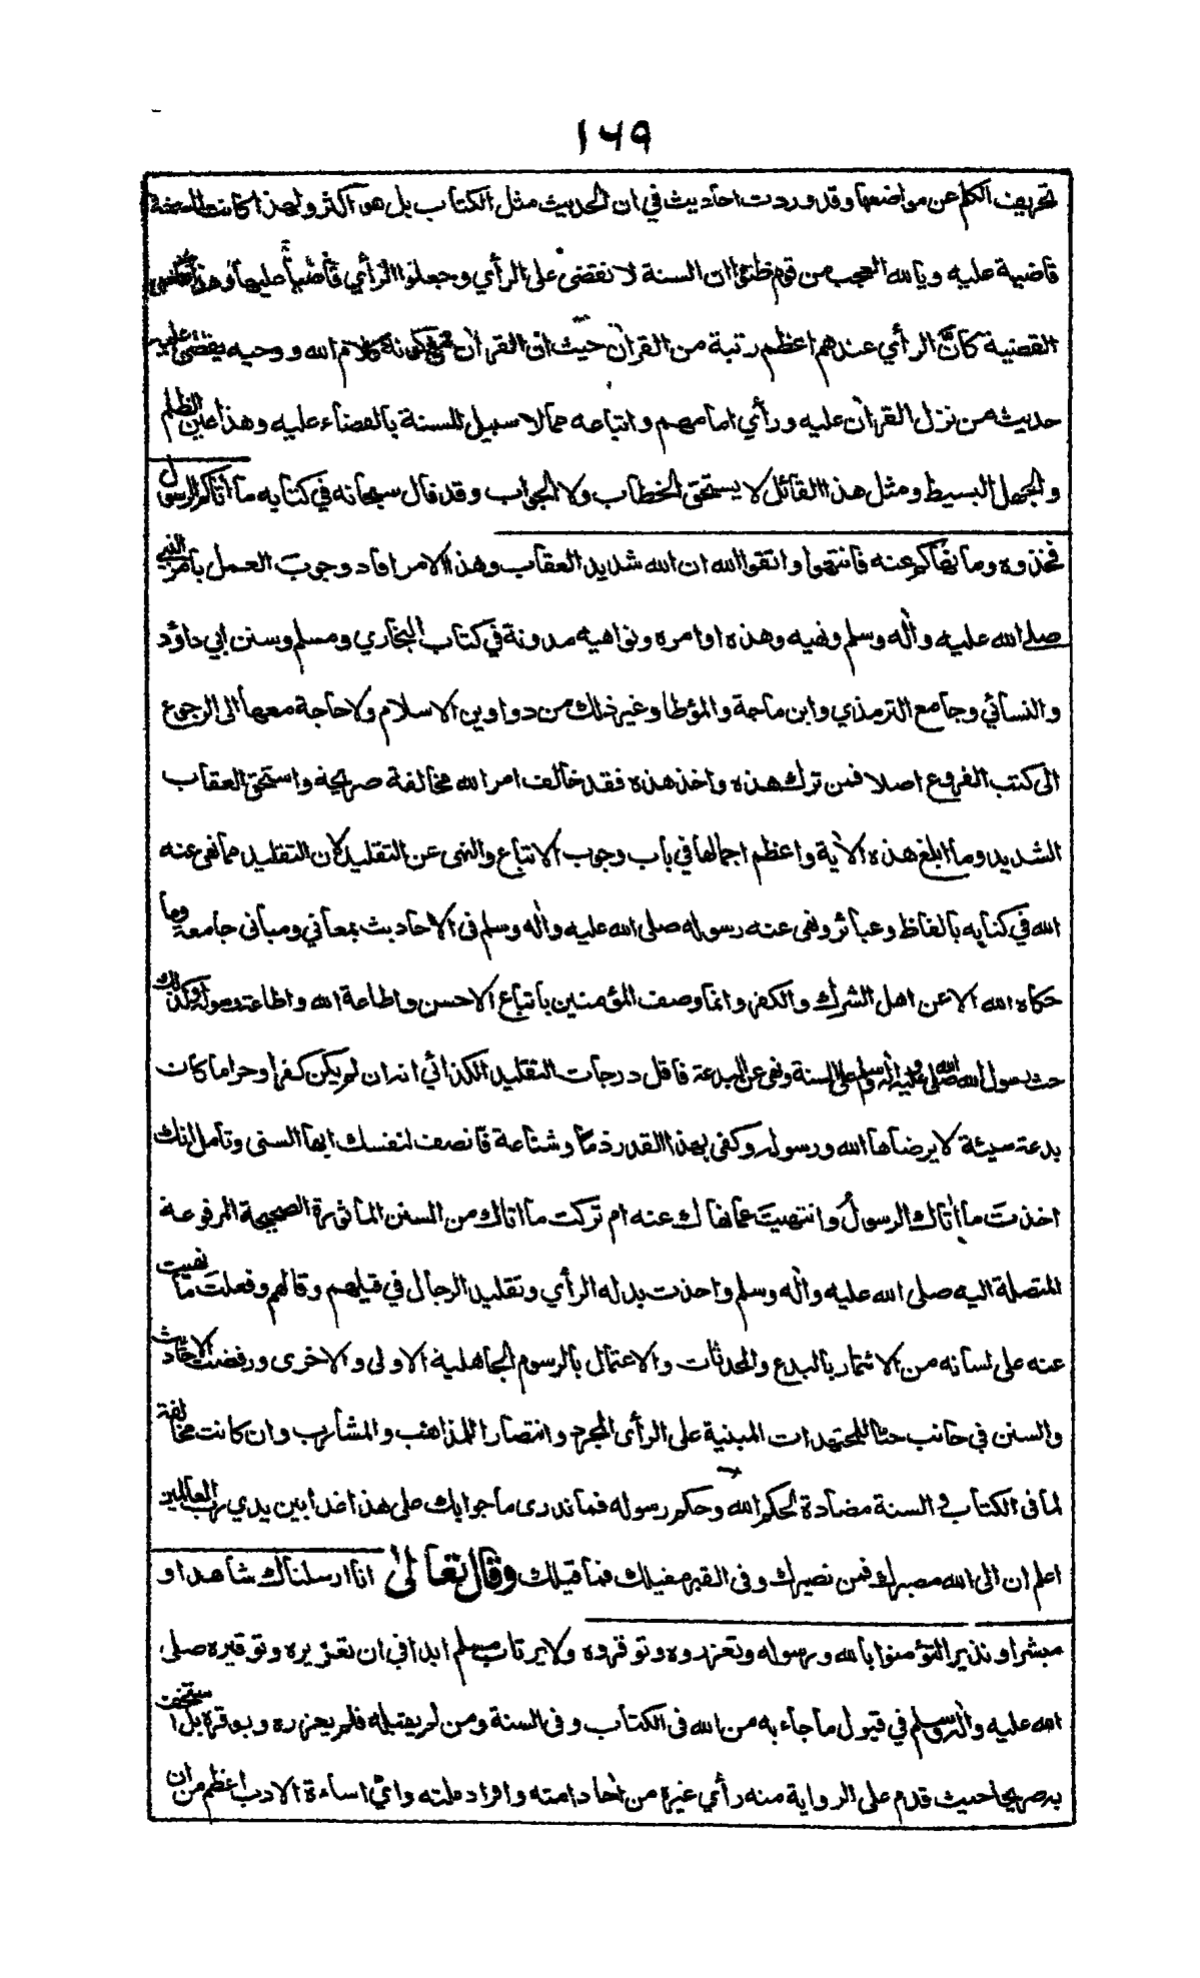 ١٦٩
تحريف الكلم عن مواضعها وقد وردت احاديث في ان الحديث مثل الكتاب بل هو اكثر ولهذا كانت السنة
قاضية عليه ويالله العجب من قوم ظنوا ان السنة لا تقضى على الرأي وجعلوا الرأي قاضيا عليها وهذا
القضية كأنّ الرأي عندهم اعظم رتبة من القرآن حيث ان القرآن مع كونه كلام الله ووحيه يقضى عليه
حديث من نزل القرآن عليه ورأي امامهم واتباعه مما لا سبيل للسنة بالقضاء عليه وهذا عين الظلم
والجهل البسيط ومثل هذا القائل لا يستحق الخطاب ولا الجواب وقد قال سبحانه في كتابه ما آتاكم الرسول
فخذوه وما نهاكم عنه فانتهوا واتقوا الله ان الله شديد العقاب وهذا الامر افاد وجوب العمل بأمر النبي
صلى الله عليه وآله وسلم ونهيه وهذه اوامره ونواهيه مدونة في كتاب البخاري ومسلم وسنن ابي داؤد
والنسائي وجامع الترمذي وابن ماجة والمؤطا وغير ذلك من دواوين الاسلام ولا حاجة معها الى الرجوع
الى كتب الفروع اصلا فمن ترك هذه واخذ هذه فقد خالف امر الله مخالفة صريحة واستحق العقاب
الشديد وما ابلغ هذه الآية واعظم اجمالها في باب وجوب الاتباع والنهى عن التقليد لان التقليد مما نهى عنه
الله في كتابه بالفاظ وعبائر ونهى عنه رسوله صلى الله عليه وآله وسلم فى الاحاديث بمعاني ومبانى جامعة وما
حكاه الله الا عن اهل الشرك والكفر وانما وصف المؤمنين باتباع الاحسن واطاعة الله واطاعة رسوله وكذلك
حث رسول الله صلى الله عليه وآله وسلم على السنة ونهى عن البدعة فاقل درجات التقليد الكذائي انه ان لم يكن كفرا وحراما كان
بدعة سيئة لا يرضاها الله ورسوله وكفى بهذا القدر ذمًا وشناعة فانصف لنفسك ايها السنى وتأمل انك
اخذتَ ما آتاك الرسولُ وانتهيتَ عما نهاك عنه ام تركت ما اتاك من السنن المأثورة الصحيحة المرفوعة
المتصلة اليه صلى الله عليه وآله وسلم واخذت بدله الرأي وتقليد الرجال في قيلهم وقالهم وفعلتَ ما نهيت
عنه على لسانه من الائتمار بالبدع والمحدثات والاعتمال بالرسوم الجاهلية الاولى والاخرى ورفضت الاحاديث
والسنن في جانب حثا للمجتهدات المبنية على الرأى المجرد وانتصارا للمذاهب والمشارب وان كانت مخالفة
لما فى الكتاب والسنة مضادة لحكم الله وحكم رسوله فما ندرى ما جوابك على هذا غدا بين يدي رب العالمين
اعلم ان الى الله مصيرك فمن نصيرك وفى القبر مقيلك فما قيلك وقال تعالىٰ انا ارسلناك شاهدا و
مبشرا ونذيرا لتؤمنوا بالله ورسوله وتعزروه وتوقروه ولا يرتاب مسلم ابدا في ان تعزيره وتوقيره صلى
الله عليه وآله وسلم في قبول ما جاء به من الله فى الكتاب وفى السنة ومن لم يقبله فلم يعزره ويوقره بل استخف
به صريحا حيث قدم على الرواية منه رأي غيره من آحاد امته وافراد ملته وايّ اساءة الادب اعظم من ان